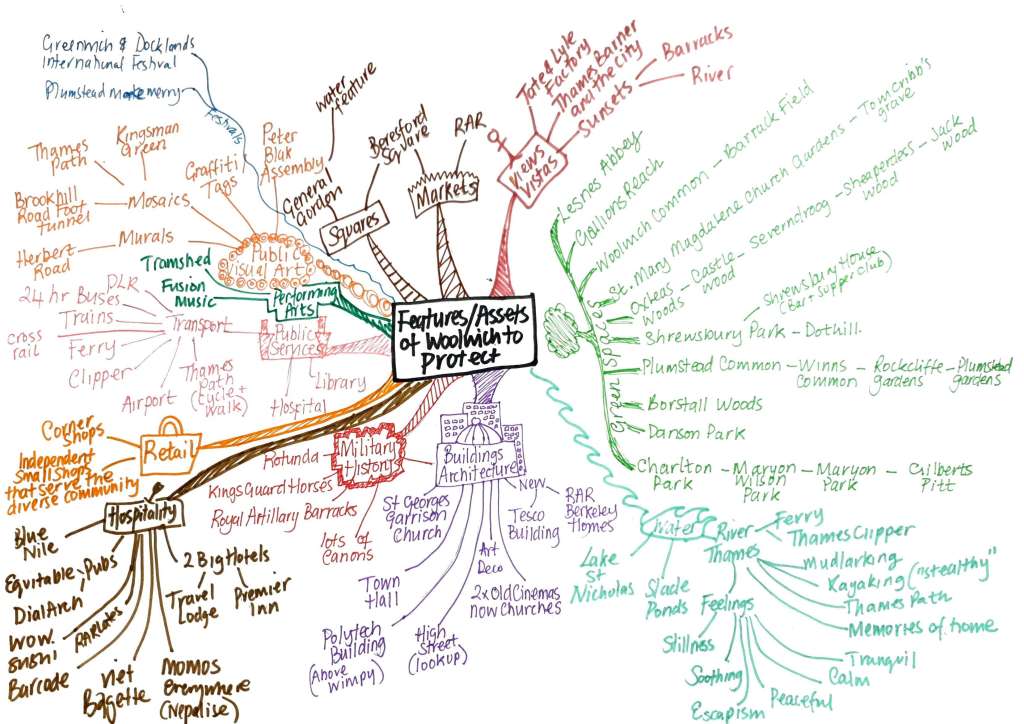 Features/Assets
of Woolwich to
Protect
Greenwich & Docklands
International Festival
Plumstead make merry
Festivals
Public
Visual Art
Thames
Path
Kingsman
Green
Brookhill
Road Foot
tunnel
Mosaics
Graffiti
Tags
Peter
Blak
Assembly
Herbert
Road
Murals
Performing
Arts
Tramshed
Fusion
Music
Public
Services
Transport
DLR
24 hr Buses
Trains
cross
rail
Ferry
Clipper
Airport
Thames
Path
(cycle+
walk)
Library
Hospital
Squares
General
Gordon
water
feature
Beresford
Square
Markets
RAR
Views
Vistas
Tate & Lyle
Factory
Thames Barrier
and the city
Sunsets
Barracks
River
Green Spaces
Lesnes Abbey
Gallions Reach
Woolwich Common - Barrack Field
St. Mary Magdalene Church Gardens - Tom Cribb's
grave
Oxleas
Woods
- Castle
wood
- Severndroog - Sheaperders
wood
- Jack
Wood
Shrewsbury House
(Bar + Supper Club)
Shrewsbury Park - Dothill.
Plumstead Common - Winns
Common
- Rockcliffe
gardens
- Plumstead
gardens
Borstall Woods
Danson Park
Charlton
Park
- Maryon
Wilson
Park
- Maryon
Park
- Gilberts
Pitt
Retail
Corner
Shops
Independent
Small shops
that serve the
diverse community
Hospitality
Blue
Nile
Pubs
Equitable
Dial Arch
WOW.
sushi
Barcode
RAR Cafes
Viet
Bagette
Momos
Everywhere
(Nepalise)
2 Big Hotels
Travel
Lodge
Premier
Inn
Military
History
Rotunda
Kings Guard Horses
Royal Artillary Barracks
lots of
Canons
Buildings
Architecture
St Georges
Garrison
Church
Town
Hall
Polytech
Building
(Above
Wimpy)
High
Street
(lookup)
Art
Deco
2x Old Cinemas
now Churches
New
Tesco
Building
RAR
Berkeley
Homes
Water
Lake
St
Nicholas
Slade
Ponds
River
Thames
Ferry
Thames Clipper
Mudlarking
Kayaking ("stealthy"
Thames Path
Memories of home
Feelings
Stillness
Soothing
Escapism
Peaceful
Calm
Tranquil